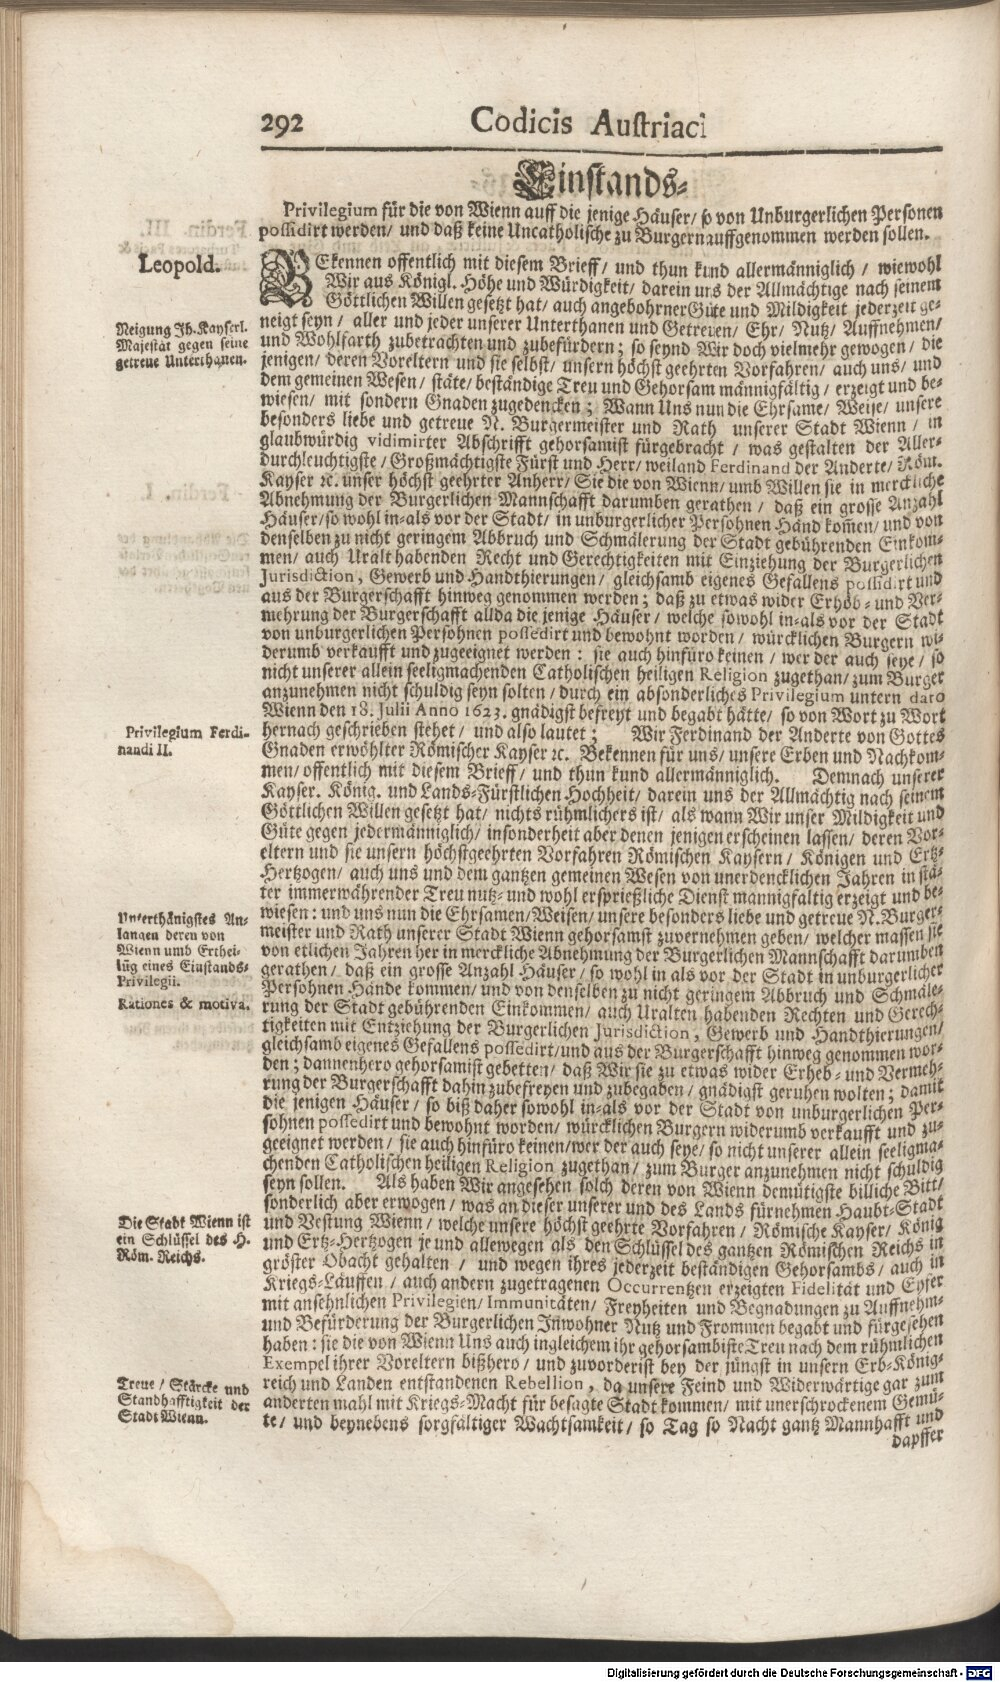 292 Codicis Austriaci
Einstands-
Privilegium für die von Wienn auff die jenige Häuser/ so von Unburgerlichen Personen
possidirt werden/ und daß keine Uncatholische zu Burgern auffgenommen werden sollen.
Leopold.
BEkennen offentlich mit diesem Brieff/ und thun kund allermänniglich / wiewohl
Wir aus Königl. Höhe und Würdigkeit/ darein uns der Allmächtige nach seinem
Göttlichen Willen gesetzt hat/ auch angebohrner Güte und Mildigkeit jederzeit ge-
Neigung Ih. Kayserl.
Majestät gegen seine
getreue Unterthanen.
neigt seyn/ aller und jeder unserer Unterthanen und Getreuen/ Ehr/ Nutz/ Auffnehmen/
und Wohlfarth zubetrachten und zubefürdern; so seynd Wir doch vielmehr gewogen/ die
jenigen/ deren Voreltern und sie selbst/ unsern höchst geehrten Vorfahren/ auch uns/ und
dem gemeinen Wesen/ stäte/ beständige Treu und Gehorsam männigfältig/ erzeigt und be-
wiesen/ mit sondern Gnaden zugedencken; Wann Uns nun die Ehrsame/ Weise/ unsere
besonders liebe und getreue N. Burgermeister und Rath unserer Stadt Wienn/ in
glaubwürdig vidimirter Abschrifft gehorsamist fürgebracht/ was gestalten der Aller-
durchleuchtigste/ Großmächtigste Fürst und Herr/ weiland Ferdinand der Anderte/ Röm.
Kayser ꝛc. unser höchst geehrter Anherr/ Sie die von Wienn/ umb Willen sie in merckliche
Abnehmung der Burgerlichen Mannschafft darumben gerathen/ daß ein grosse Anzahl
Häuser/ so wohl in-als vor der Stadt/ in unburgerlicher Persohnen Hand kom̃en/ und von
denselben zu nicht geringem Abbruch und Schmälerung der Stadt gebührenden Einkom-
men/ auch Uralt habenden Recht und Gerechtigkeiten mit Einziehung der Burgerlichen
Jurisdiction, Gewerb und Handthierungen/ gleichsamb eigenes Gefallens possidirt und
aus der Burgerschafft hinweg genommen werden; daß zu etwas wider Erhöb- und Ver-
mehrung der Burgerschafft allda die jenige Häuser/ welche sowohl in-als vor der Stadt
von unburgerlichen Persohnen possedirt und bewohnt worden/ würcklichen Burgern wi-
derumb verkaufft und zugeeignet werden: sie auch hinfüro keinen/ wer der auch seye/ so
nicht unserer allein seeligmachenden Catholischen heiligen Religion zugethan/ zum Burger
anzunehmen nicht schuldig seyn solten/ durch ein absonderliches Privilegium untern dato
Wienn den 18. Julii Anno 1623. gnädigst befreyt und begabt hätte/ so von Wort zu Wort
Privilegium Ferdi-
nandi II.
hernach geschrieben stehet/ und also lautet; Wir Ferdinand der Anderte von Gottes
Gnaden erwöhlter Römischer Kayser ꝛc. Bekennen für uns/ unsere Erben und Nachkom-
men/ offentlich mit diesem Brieff/ und thun kund allermänniglich. Demnach unserer
Kayser. König. und Lands-Fürstlichen Hochheit/ darein uns der Allmächtig nach seinem
Göttlichen Willen gesetzt hat/ nichts rühmlichers ist/ als wann Wir unser Mildigkeit und
Güte gegen jedermänniglich/ insonderheit aber denen jenigen erscheinen lassen/ deren Vor-
eltern und sie unsern höchstgeehrten Vorfahren Römischen Kaysern/ Königen und Ertz-
Hertzogen/ auch uns und dem gantzen gemeinen Wesen von unerdencklichen Jahren in stä-
ter immerwährender Treu nutz- und wohl ersprießliche Dienst mannigfaltig erzeigt und be-
Unterthänigstes An-
langen deren von
Wienn umb Erthei-
lũg eines Einstands-
Privilegii.
Rationes & motiva.
wiesen: und uns nun die Ehrsamen/ Weisen/ unsere besonders liebe und getreue N. Burger-
meister und Rath unserer Stadt Wienn gehorsamst zuvernehmen geben/ welcher massen sie
von etlichen Jahren her in merckliche Abnehmung der Burgerlichen Mannschafft darumben
gerathen/ daß ein grosse Anzahl Häuser/ so wohl in als vor der Stadt in unburgerlicher
Persohnen Hände kommen/ und von denselben zu nicht geringem Abbruch und Schmäle-
rung der Stadt gebührenden Einkommen/ auch Uralten habenden Rechten und Gerech-
tigkeiten mit Entziehung der Burgerlichen Jurisdiction, Gewerb und Handthierungen/
gleichsamb eigenes Gefallens possedirt/ und aus der Burgerschafft hinweg genommen wor-
den; dannenhero gehorsamist gebetten/ daß Wir sie zu etwas wider Erheb- und Vermeh-
rung der Burgerschafft dahin zubefreyen und zubegaben/ gnädigst geruhen wolten; damit
die jenigen Häuser/ so biß daher sowohl in-als vor der Stadt von unburgerlichen Per-
sohnen possedirt und bewohnt worden/ würcklichen Burgern widerumb verkaufft und zu-
geeignet werden/ sie auch hinfüro keinen/ wer der auch seye/ so nicht unserer allein seeligma-
chenden Catholischen heiligen Religion zugethan/ zum Burger anzunehmen nicht schuldig
seyn sollen. Als haben Wir angesehen solch deren von Wienn demütigste billiche Bitt/
sonderlich aber erwogen/ was an dieser unserer und des Lands fürnehmen Haubt-Stadt
Die Stadt Wienn ist
ein Schlüssel des H.
Röm. Reichs.
und Vestung Wienn/ welche unsere höchst geehrte Vorfahren/ Römische Kayser/ König
und Ertz-Hertzogen je und allewegen als den Schlüssel des gantzen Römischen Reichs in
gröster Obacht gehalten/ und wegen ihres jederzeit beständigen Gehorsambs/ auch in
Kriegs-Läuffen/ auch andern zugetragenen Occurrentzen erzeigten Fidelität und Eyfer
mit ansehnlichen Privilegien/ Immunitäten/ Freyheiten und Begnadungen zu Auffnehm-
und Befürderung der Burgerlichen Inwohner Nutz und Frommen begabt und fürgesehen
haben: sie die von Wienn Uns auch ingleichem ihr gehorsambiste Treu nach dem rühmlichen
Exempel ihrer Voreltern bißhero/ und zuvorderist bey der jüngst in unsern Erb-König-
Treue/ Stärcke und
Standhafftigkeit der
Stadt Wienn.
reich und Landen entstandenen Rebellion, da unsere Feind und Widerwärtige gar zum
anderten mahl mit Kriegs-Macht für besagte Stadt kommen/ mit unerschrockenem Gemü-
te/ und beynebens sorgfältiger Wachtsamkeit/ so Tag so Nacht gantz Mannhafft und
dapffer
Digitalisierung gefördert durch die Deutsche Forschungsgemeinschaft - DFG